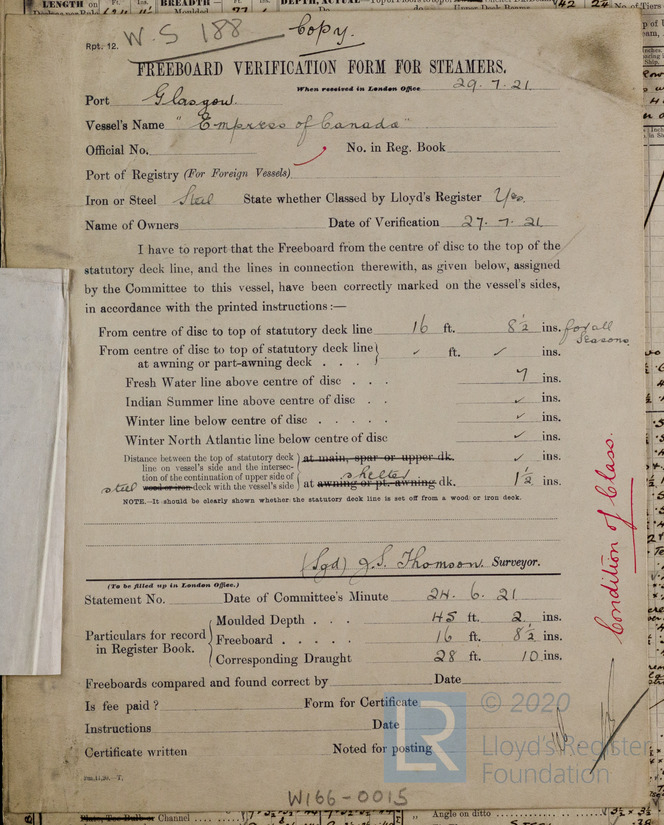 W.S 188
Copy.
Rpt. 12.
FREEBOARD VERIFICATION FORM FOR STEAMERS.
When received in London Office 29.7.21
Port Glasgow.
Vessel's Name "Empress of Canada"
Official No. No. in Reg. Book
Port of Registry (For Foreign Vessels)
Iron or Steel Steel State whether Classed by Lloyd's Register Yes.
Name of Owners Date of Verification 27.7.21
I have to report that the Freeboard from the centre of disc to the top of the
statutory deck line, and the lines in connection therewith, as given below, assigned
by the Committee to this vessel, have been correctly marked on the vessel's sides,
in accordance with the printed instructions :—
From centre of disc to top of statutory deck line 16 ft. 8½ ins. for all
seasons
From centre of disc to top of statutory deck line
at awning or part-awning deck . . . ✓ ft. ✓ ins.
Fresh Water line above centre of disc . . . 7 ins.
Indian Summer line above centre of disc . . ✓ ins.
Winter line below centre of disc . . . . . ✓ ins.
Winter North Atlantic line below centre of disc ✓ ins.
Distance between the top of statutory deck
line on vessel's side and the intersec-
tion of the continuation of upper side of
steel wood or iron deck with the vessel's side
at main, spar or upper dk. ✓ ins.
shelter
at awning or pt. awning dk. 1½ ins.
NOTE.—It should be clearly shown whether the statutory deck line is set off from a wood or iron deck.
(Sgd) J.S. Thomson. Surveyor.
(To be filled up in London Office.)
Statement No. Date of Committee's Minute 24.6.21
Particulars for record
in Register Book.
Moulded Depth . . . 45 ft. 2 ins.
Freeboard . . . . . 16 ft. 8½ ins.
Corresponding Draught 28 ft. 10 ins.
Freeboards compared and found correct by Date
Is fee paid ? Form for Certificate
Instructions Date
Certificate written Noted for posting
Condition of Class.
© 2020
LR
Lloyd's Register
Foundation
W166-0015
LENGTH on
BREADTH—
Moulded
DEPTH, ACTUAL—
No. of Tiers
Channel
Angle on ditto